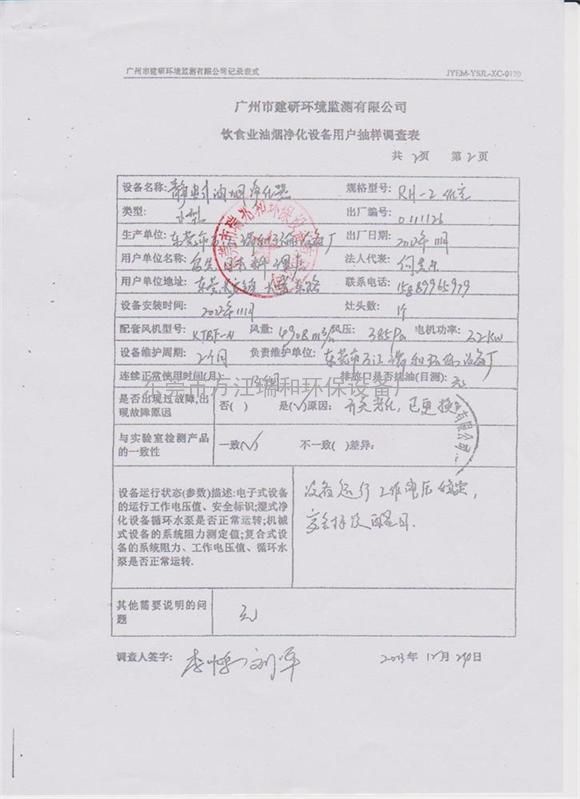 广州市建研环境监测有限公司记录表式 JYEM-YSJL-XC-0120
广州市建研环境监测有限公司
饮食业油烟净化设备用户抽样调查表
共 2页 第 2 页
设备名称: 静电油烟净化器 规格型号: RH-2
类型: 小型 出厂编号: 0111126
生产单位: 东莞市万江瑞和环保设备厂 出厂日期: 2012年11月
用户单位名称: 日本料理店 法人代表:
用户单位地址: 东莞 联系电话: 15889965979
设备安装时间: 2012年11月 灶头数: 1个
配套风机型号: KTBF-N 风量: 4908m³/h 风压: 385Pa 电机功率: 2.2kw
设备维护周期: 2个月 负责维护单位: 东莞市万江瑞和环保设备厂
连续正常使用时间(月): 排放口是否挂油(目测): 无
东莞市万江瑞和环保设备厂
是否出现过故障,出现故障原因 否( ) 是(√)原因: 开关老化,已更换
有限公司
与实验室检测产品的一致性 一致(√) 不一致( )差异:
设备运行状态(参数)描述:电子式设备
的运行工作电压值、安全标识;湿式净
化设备循环水泵是否正常运转;机械
式设备的系统阻力测定值;复合式设
备的系统阻力、工作电压值、循环水
泵是否正常运转.
设备运行工作电压稳定,
安全标识明显.
其他需要说明的问题 无
调查人签字: 2013年 12月 日